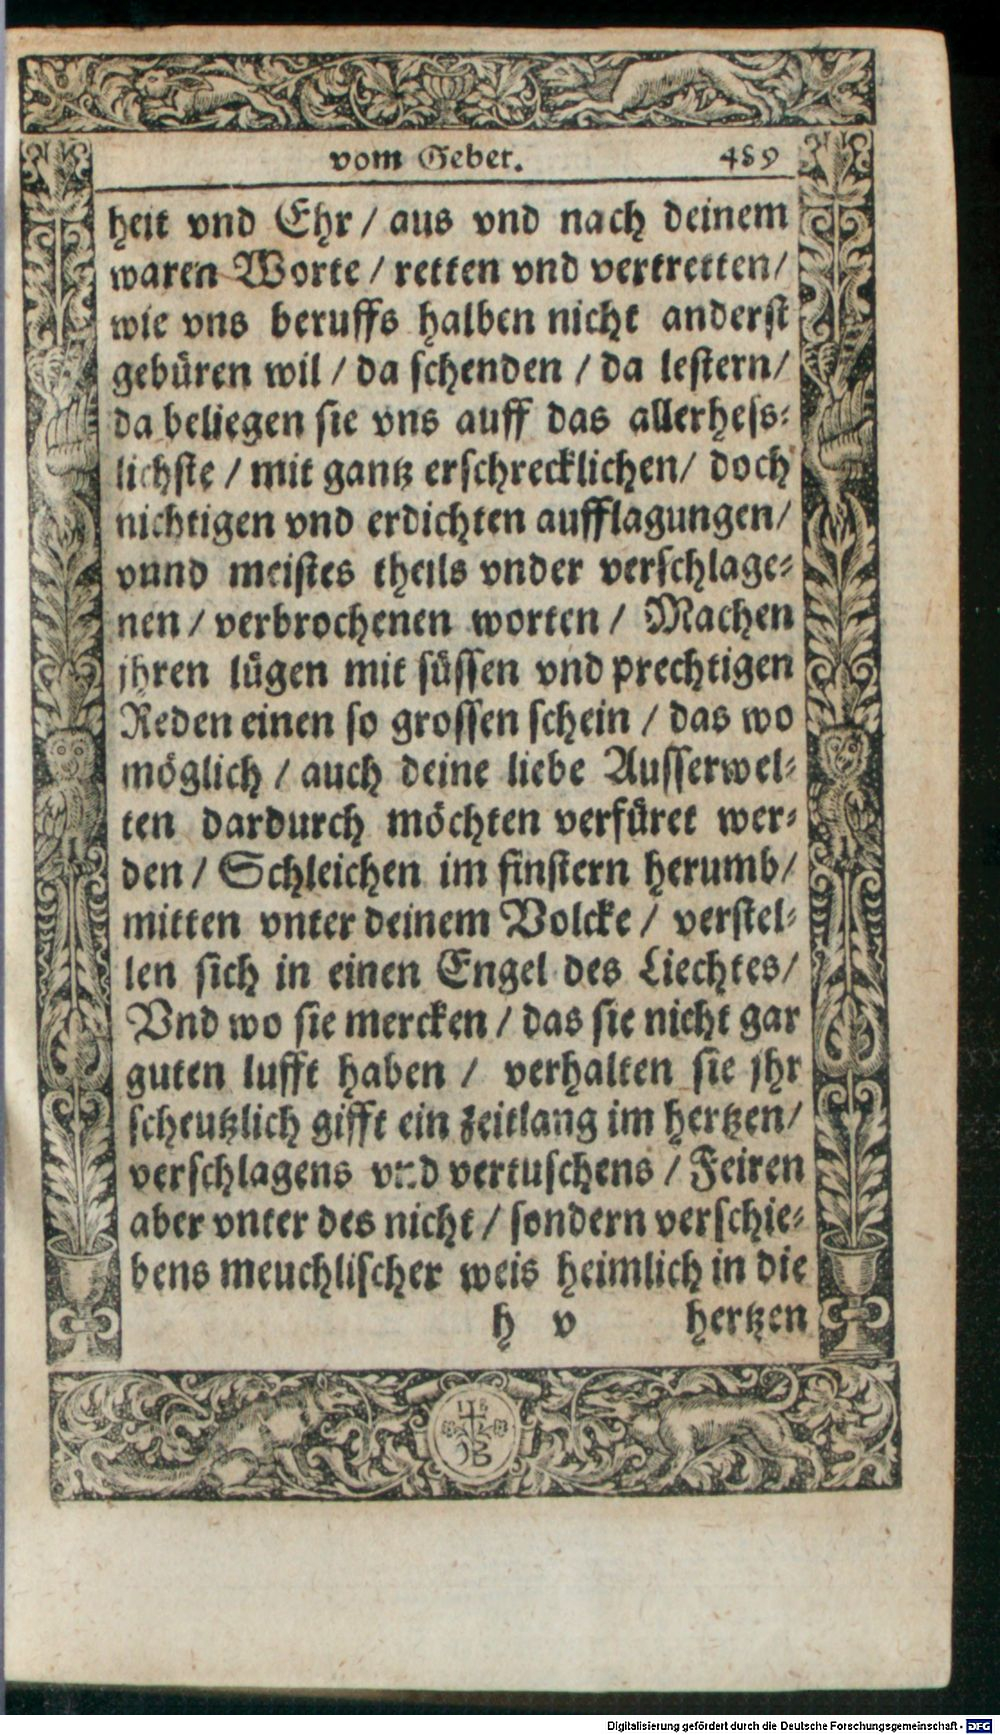 vom Gebet. 489
heit vnd Ehr / aus vnd nach deinem
waren Worte / retten vnd vertretten/
wie vns beruffs halben nicht anderst
gebüren wil / da schenden / da lestern/
da beliegen sie vns auff das allerhess-
lichste / mit gantz erschrecklichen/ doch
nichtigen vnd erdichten aufflagungen/
vnnd meistes theils vnder verschlage-
nen / verbrochenen worten / Machen
jhren lügen mit süssen vnd prechtigen
Reden einen so grossen schein / das wo
möglich / auch deine liebe Ausserwel-
ten dardurch möchten verfüret wer-
den / Schleichen im finstern herumb/
mitten vnter deinem Volcke / verstel-
len sich in einen Engel des Liechtes/
Vnd wo sie mercken / das sie nicht gar
guten lufft haben / verhalten sie jhr
scheutzlich gifft ein zeitlang im hertzen/
verschlagens vnd vertuschens / Feiren
aber vnter des nicht / sondern verschie-
bens meuchlischer weis heimlich in die
h v hertzen
Digitalisierung gefördert durch die Deutsche Forschungsgemeinschaft - DFG